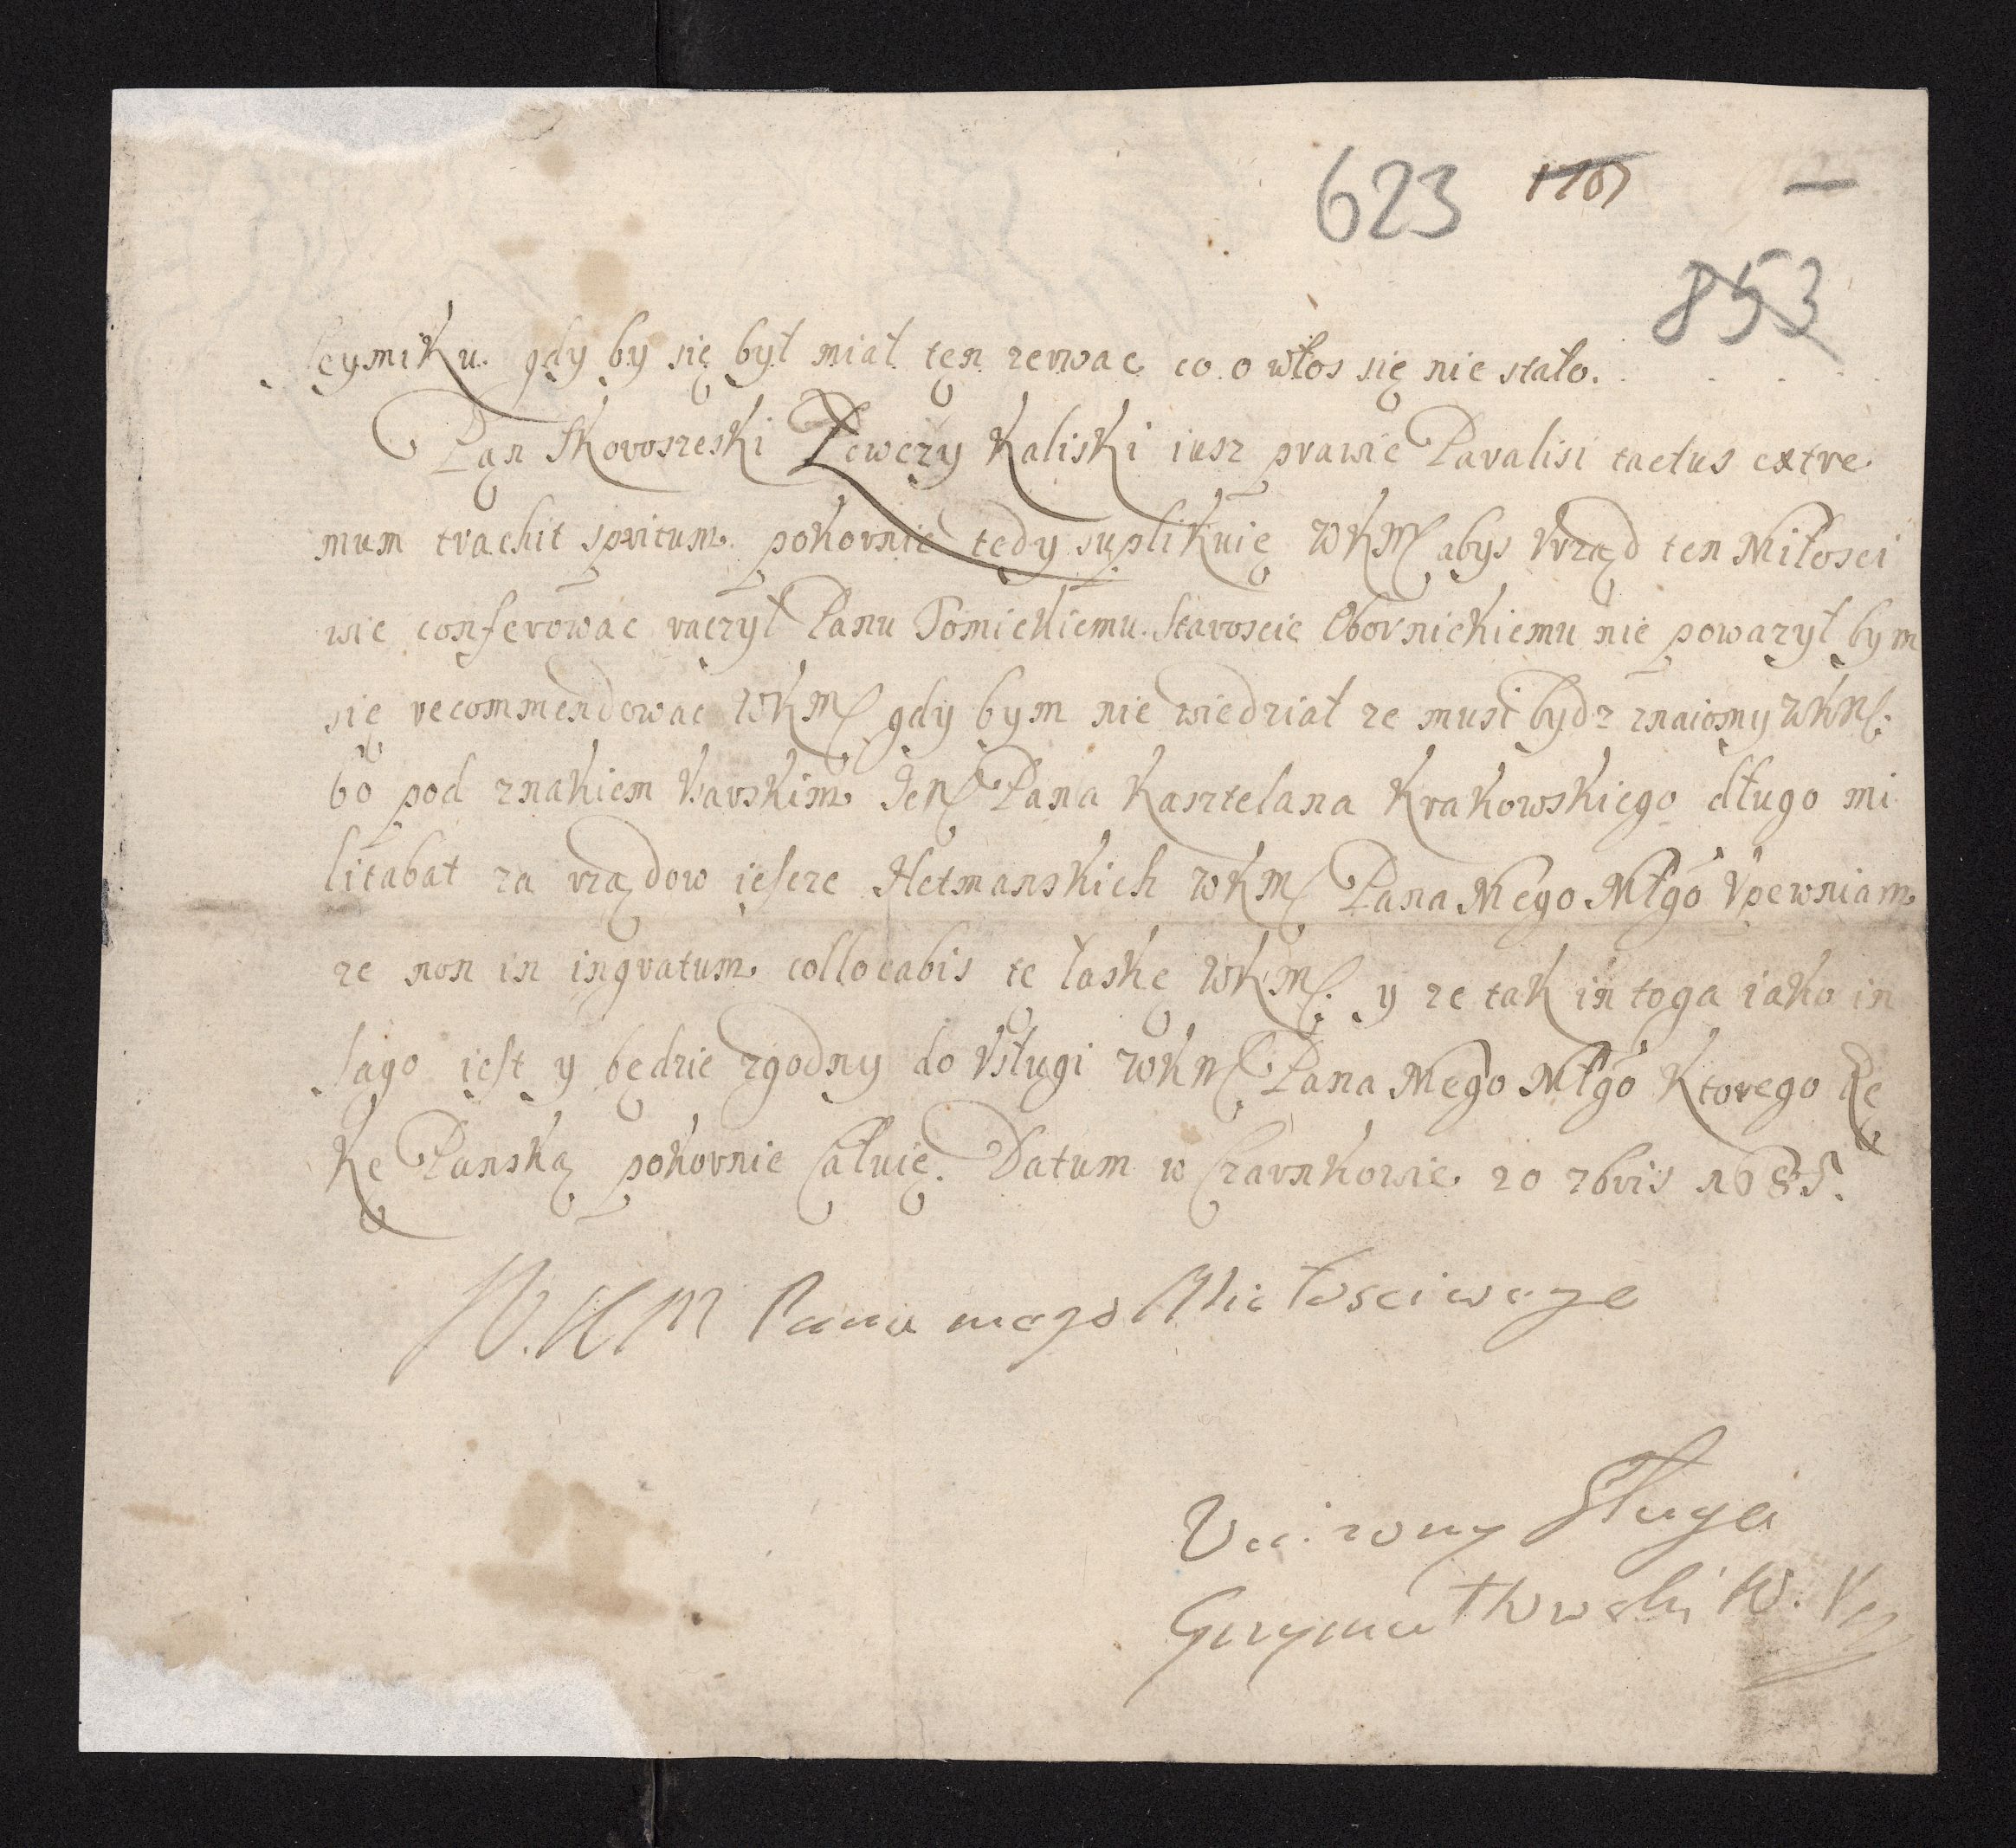 623 1707 —
853
seymiku. gdy by się był miał ten rerwac co o włos się nie stało.
Pan Skoroszeski Łowczy Kaliski iusz prawie Paralisi tactus extre
mum trachit spritum. pokornie tedy suplikuię WKM abys Vrząd ten Miłosci
wie conferowac raczył Panu Tomickiemu. Staroscie Obornickiemu nie powarzył bym
się recommendowac WKM gdy bym nie wiedział ze musi bydz znaiomy WKM.
bo pod znakiem Vsarskim JeM Pana Kasztelana Krakowskiego długo mi
litabat za rządow ieszcze Hetmanskich WKM Pana Mego Młgo Vpewniam
ze non in ingratum collocabis te łaskę WKM. y ze tak in toga iako in
sago iest y będzie zgodny do Vsługi WKM Pana Mego Młgo Ktorego Rę
kę Panską pokornie Całuię. Datum w Czarnkowie 20 7bris 1685.
W.K M Pana mego Miełosciwego
Sługa
Grzymułtowski W. P